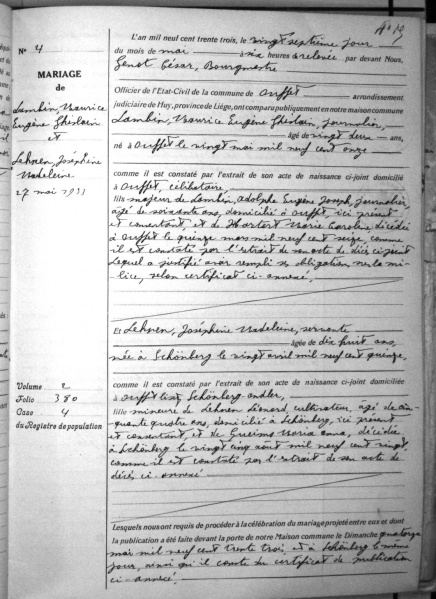 N° 19
N° 4
MARIAGE
de
Lambin, Maurice
Eugène Ghislain
et
Lehnen, Joséphine
Madeleine
27 mai 1933
Volume 2
Folio 380
Case 4
du Registre de population
L'an mil neuf cent trente trois, le vingt septième jour
du mois de mai à six heures de relevée par devant Nous,
Genot César, Bourgmestre
Officier de l'Etat-Civil de la commune de Ouffet arrondissement
judiciaire de Huy, province de Liége, ont comparu publiquement en notre maison commune
Lambin, Maurice Eugène Ghislain, journalier,
âgé de vingt deux ans,
né à Ouffet le vingt mai mil neuf cent onze
comme il est constaté par l'extrait de son acte de naissance ci-joint domicilié
à Ouffet, célibataire,
fils majeur de Lambin, Adolphe Eugène Joseph, journalier,
âgé de soixante ans, domicilié à Ouffet, ici présent
et consentant, et de Hartert Marie Caroline décédée
à Ouffet le quinze mars mil neuf cent seize, comme
il est constaté par l'extrait de son acte de décès ci-joint
Lequel a justifié avoir rempli ses obligations sur la mi-
lice, selon certificat ci-annexé.
Et Lehnen, Joséphine Madeleine, servante
âgée de dix huit ans,
née à Schönberg le vingt avril mil neuf cent quinze,
comme il est constaté par l'extrait de son acte de naissance ci-joint domiciliée
à Ouffet Schönberg
fille mineure de Lehnen Léonard, cultivateur, âgé de cin-
quante quatre ans, domicilié à Schönberg, ici présent
et consentant, et de Maria Anna décédée
à Schönberg le vingt cinq août mil neuf cent vingt
comme il est constaté par l'extrait de son acte de
décès ci-annexé
Lesquels nous ont requis de procéder à la célébration du mariage projeté entre eux et dont
la publication a été faite devant la porte de notre Maison commune le Dimanche quatorze
mai mil neuf cent trente trois, et à Schönberg le même
jour, ainsi qu'il conste du certificat de publication
ci-annexé.